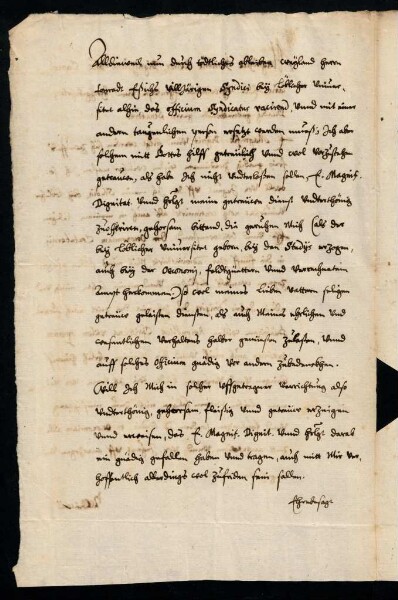 Alldieweil nun durch tödtliches ableiben Weyland herrn
villjärigen Syndici bey Löblicher Univer-
sitet alhie das Officium Syndicatus vacirend, vnnd mit einer
andern taugenlichen person ersetzt werden mueß; Ich aber
solchem mitt Gottes hilff getreülich vnnd wol vorzustehen
getrauen, als habe Ich nicht vnderlassen sollen, E. Magnif.
Dignitet. vnnd meine getreuen dienst vnderthönig
gehorsam bittend, die geruehen Mich (als der
bey Löblicher Universitet geborn, bey den Studijs erzogen,
auch bey der Oeconomj, feldtgüettern vnnd
herkommen) so wol meines lieben vattern seligen
getreuer gelaisten diensten, als auch Meines ehrlichen vnd
verhaltens halber geniessen zulassen, vnnd
auff solches Officium gnädig vor andern zubedenckhen.
Will Ich Mich in solcher verrichtung also
vnderthönig, gehorsam fleissig vnnd getreuer erzeigen
vnnd weisen, das E. Magnif. Dignit. vnnd darab
ein gnädig gefallen haben vnnd tragen, auch mitt Mir ver-
hoffentlich allerdings wol zufriden sein sollen.